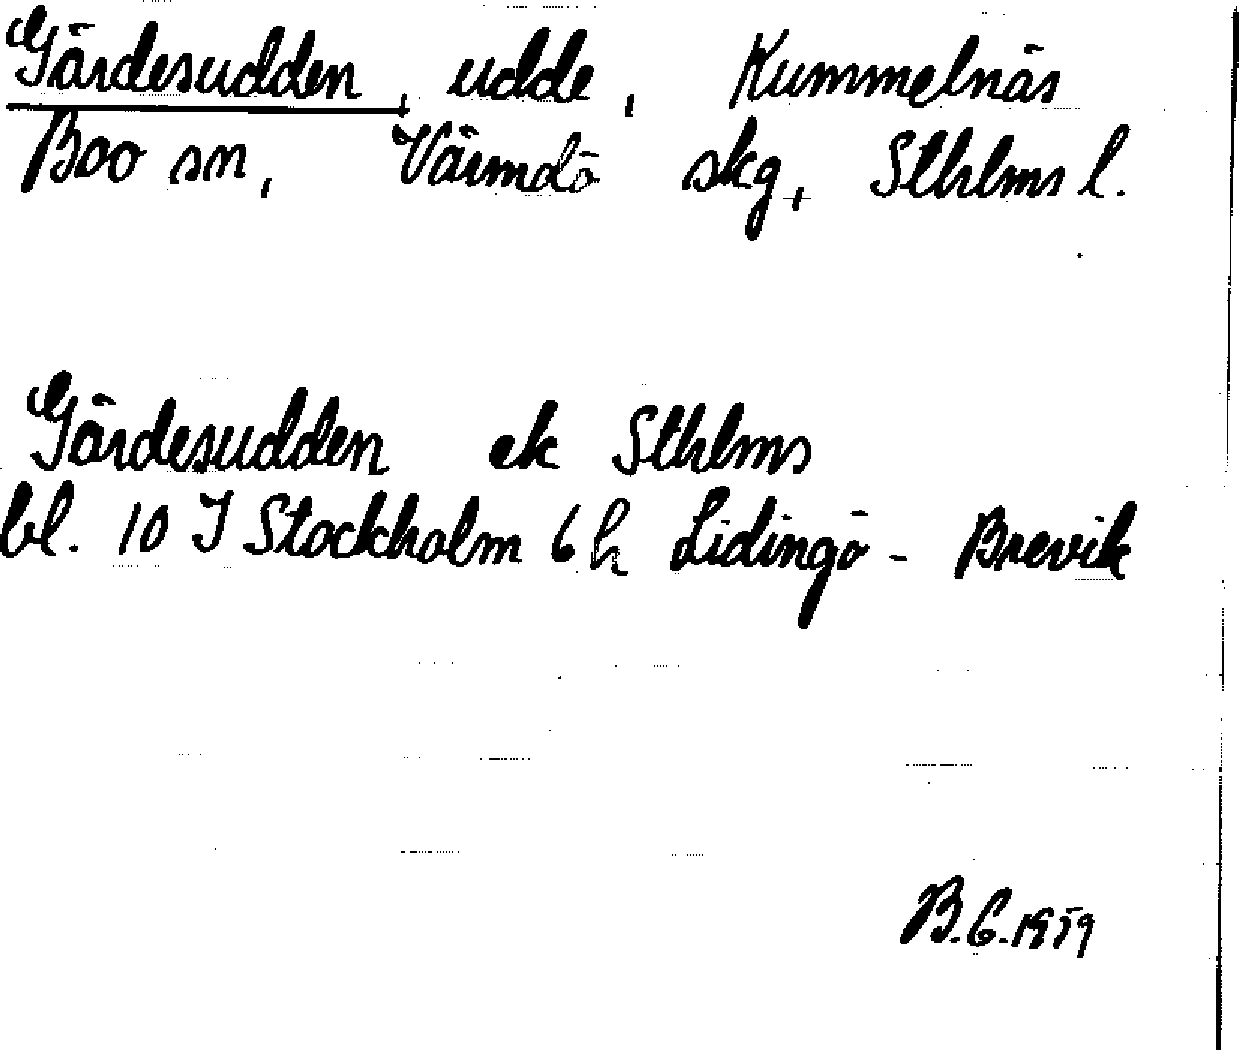 Gärdesudden, udde, Kummelnäs
Boo sn, Värmdö skg, Sthlms l.
Gärdesudden ek Sthlms
bl. 10 I Stockholm 6 h Lidingö - Brevik
B.G.1959